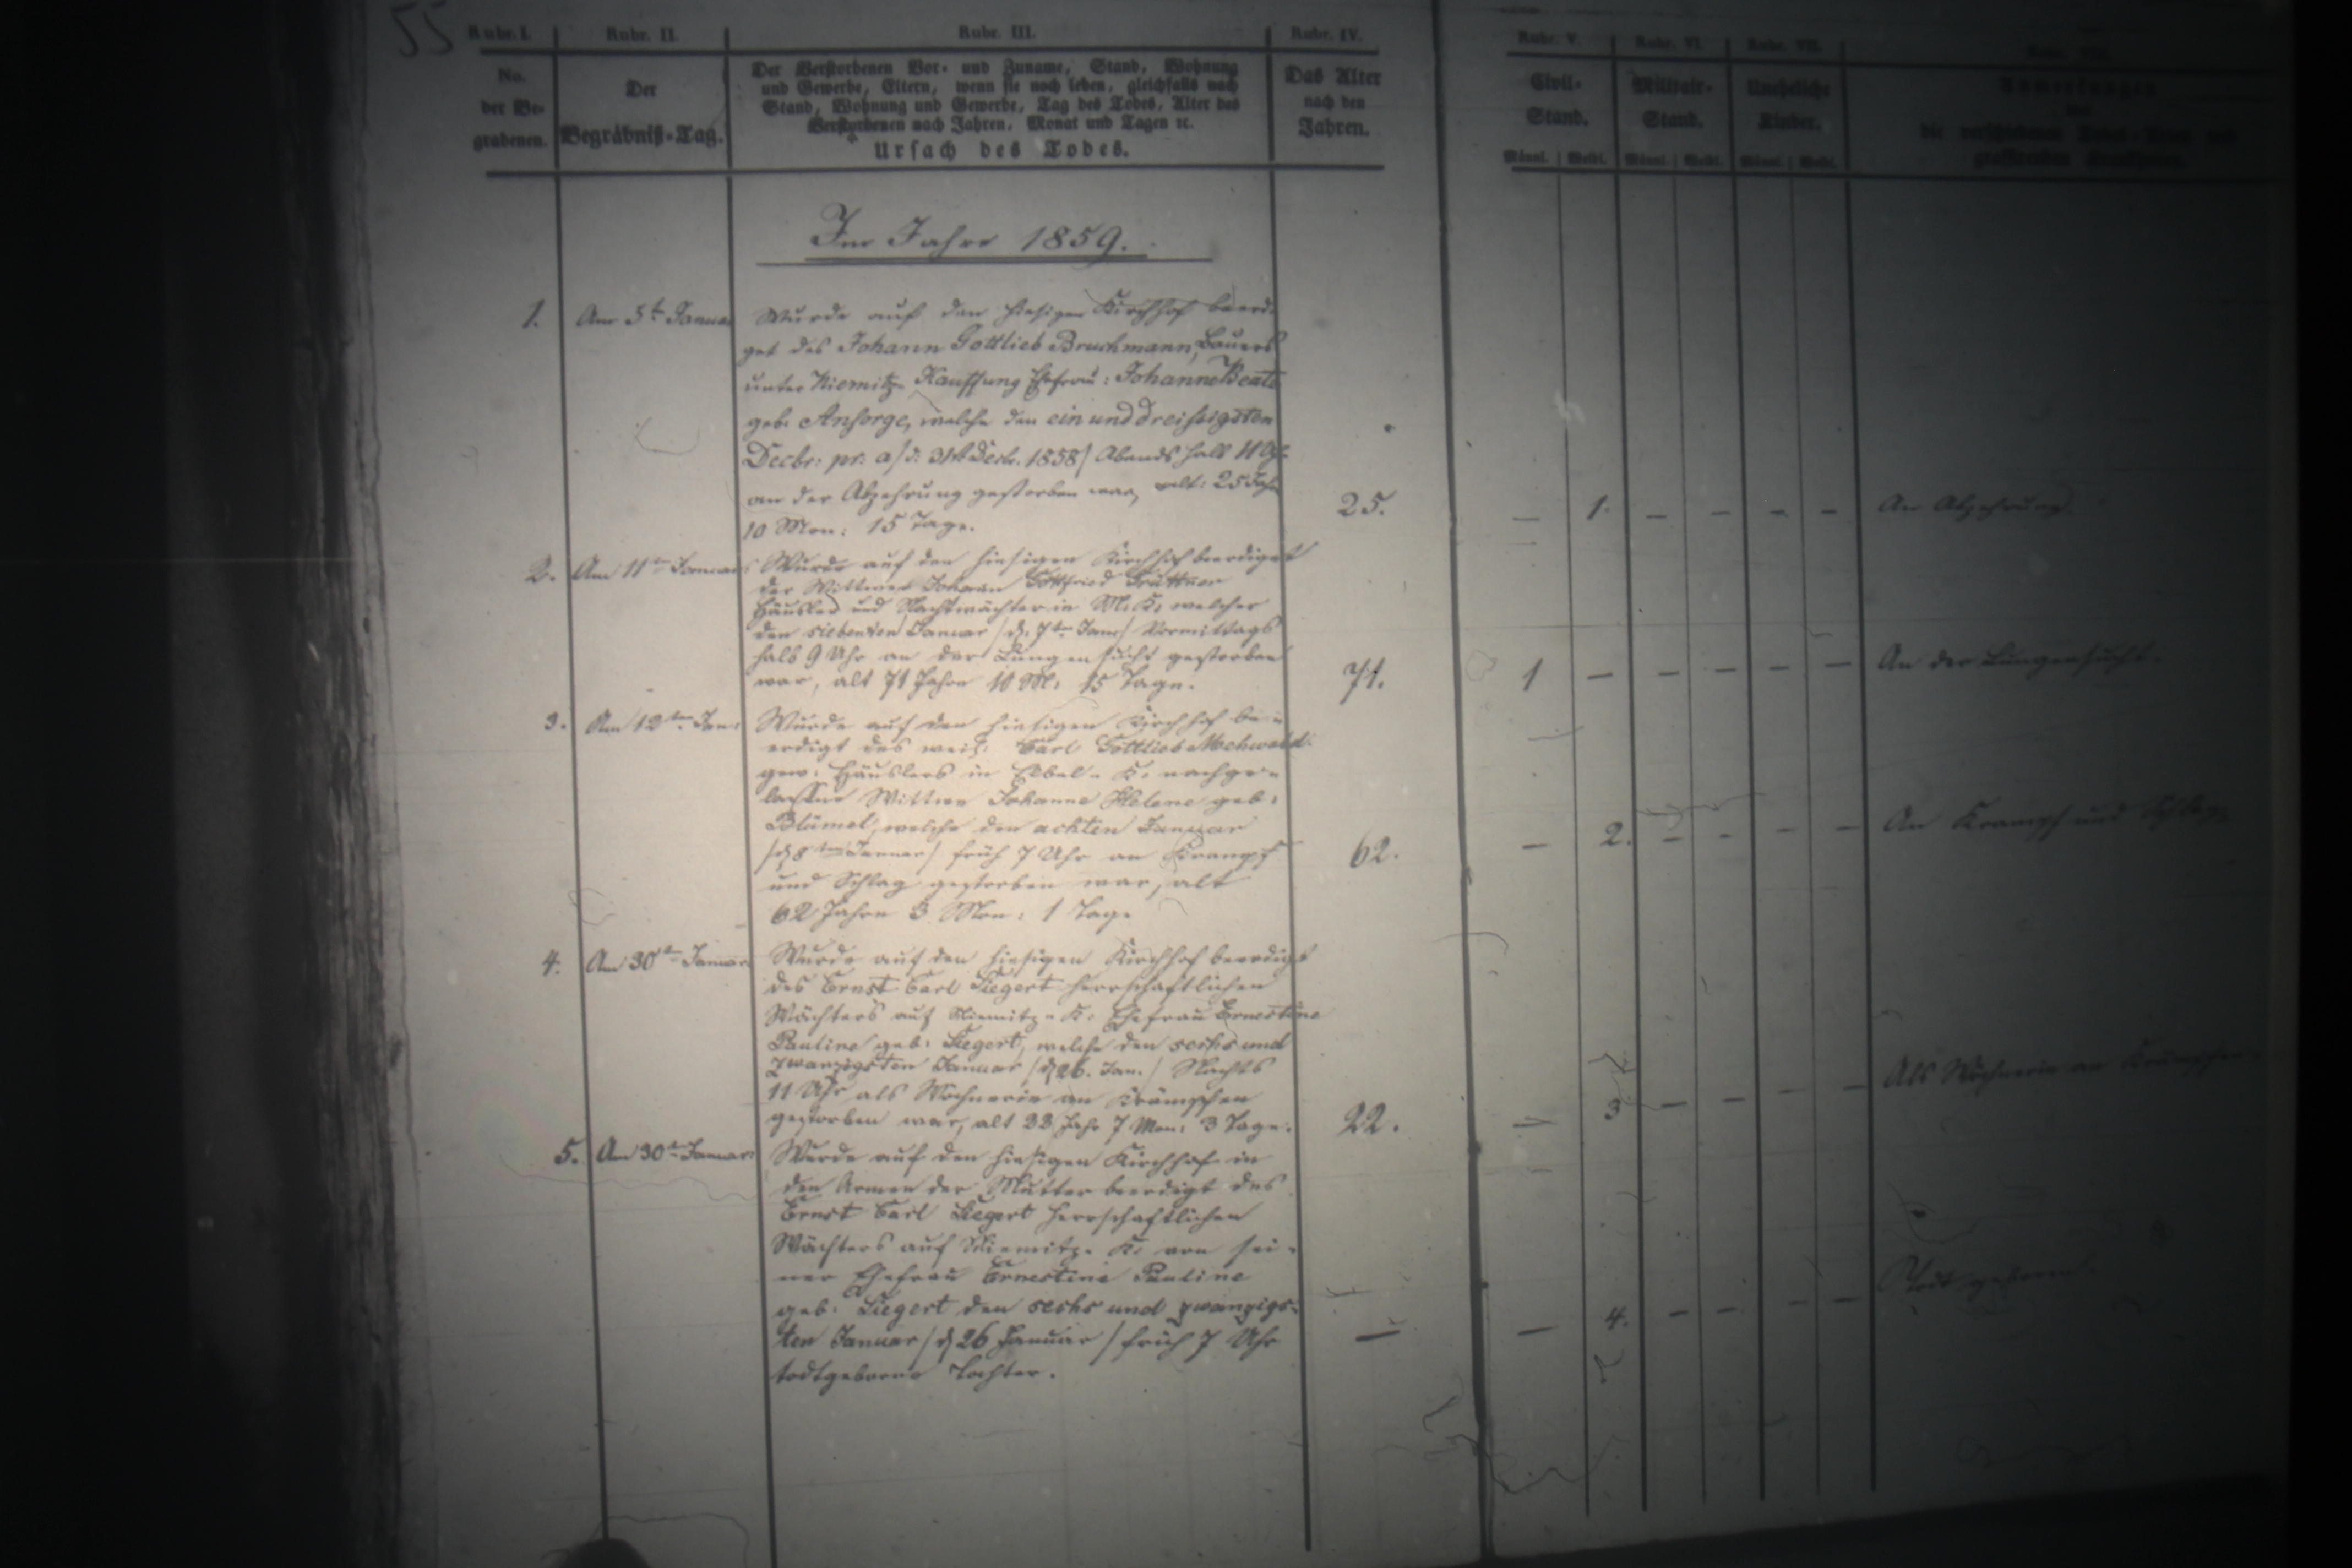 55
Rubr. I. Rubr. II. Rubr. III. Rubr. IV. Rubr. V. Rubr. VI. Rubr. VII.
No.
der Be-
grabenen.
Der
Begräbniß-Tag.
Der Verstorbenen Vor- und Zuname, Stand, Wohnung
und Gewerbe, Eltern, wenn sie noch leben, gleichfalls nach
Stand, Wohnung und Gewerbe, Tag des Todes, Alter des
Verstorbenen nach Jahren, Monat und Tagen ꝛc.
Ursach des Todes.
Das Alter
nach den
Jahren.
Civil-
Stand.
Männl. Weibl.
Militair-
Stand.
Männl. Weibl.
Uneheliche
Kinder.
Männl. Weibl.
Anmerkungen
Im Jahre 1859.
1. Am 5t. Januar Wurde auf den hiesigen Kirchhof beerdi-
get des Johann Gottlieb Bruchmann, Bauers
unter Niemitz-Kauffung Ehefrau: Johanne Beate
geb: Ansorge, welche den ein und dreissigsten
Decbr: pr: a/ d: 31t Decb. 1858/ Abends halb 11 Uhr
an der Abzehrung gestorben war, alt: 25 Jahr
10 Mon: 15 Tage. 25. — 1. — — — — An Abzehrung
2. Am 11ten Januar Wurde auf den hiesigen Kirchhof beerdiget
der Wittwer Johann Gottfried Grüttner
Häusler und Nachtwächter in M. K. welcher
den siebenten Januar /d. 7ten Janr/ Vormittags
halb 9 Uhr an der Lungensucht gestorben
war, alt 71 Jahre 10 M: 15 Tage. 71. 1 — — — — — An der Lungensucht.
3. Am 12ten Jan: Wurde auf den hiesigen Kirchhof be-
erdigt des weil: Carl Gottlieb Mochwald
gew: Häuslers in K. nachge-
lassne Wittwe Johanne Helene geb:
Blümel, welche den achten Januar
/d 8ten Januar/ früh 7 Uhr an Krampf
und Schlag gestorben war, alt
62 Jahre 3 Mon: 1 Tag. 62. — 2. — — — — An Krampf und Schlag
4. Am 30ten Januar Wurde auf den hiesigen Kirchhof beerdigt
des Ernst Carl Siegert herrschaftlichen
Wächters auf Niemitz-K. Ehefrau Ernestine
Pauline geb: Siegert, welche den sechs und
zwanzigsten Januar /d 26. Jan./ Nachts
11 Uhr als Wöchnerin an Krämpfen
gestorben war, alt 22 Jahr 7 Mon: 3 Tage. 22. — 3 — — — — Als Wöchnerin an Krämpfen
5. Am 30t Januar: Wurde auf den hiesigen Kirchhof in
den Armen der Mutter beerdigt des
Ernst Carl Siegert herrschaftlichen
Wächters auf Niemitz-K. von sei-
ner Ehefrau Ernestine Pauline
geb: Siegert den sechs und zwanzigs-
ten Januar /d 26 Januar/ früh 7 Uhr
todtgeborne Tochter. — — 4. — — — — Todt geboren.